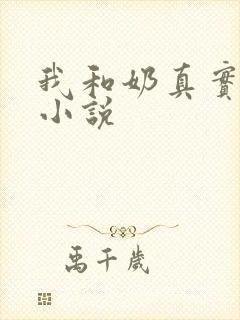 我和奶真實
小說
禹千歲